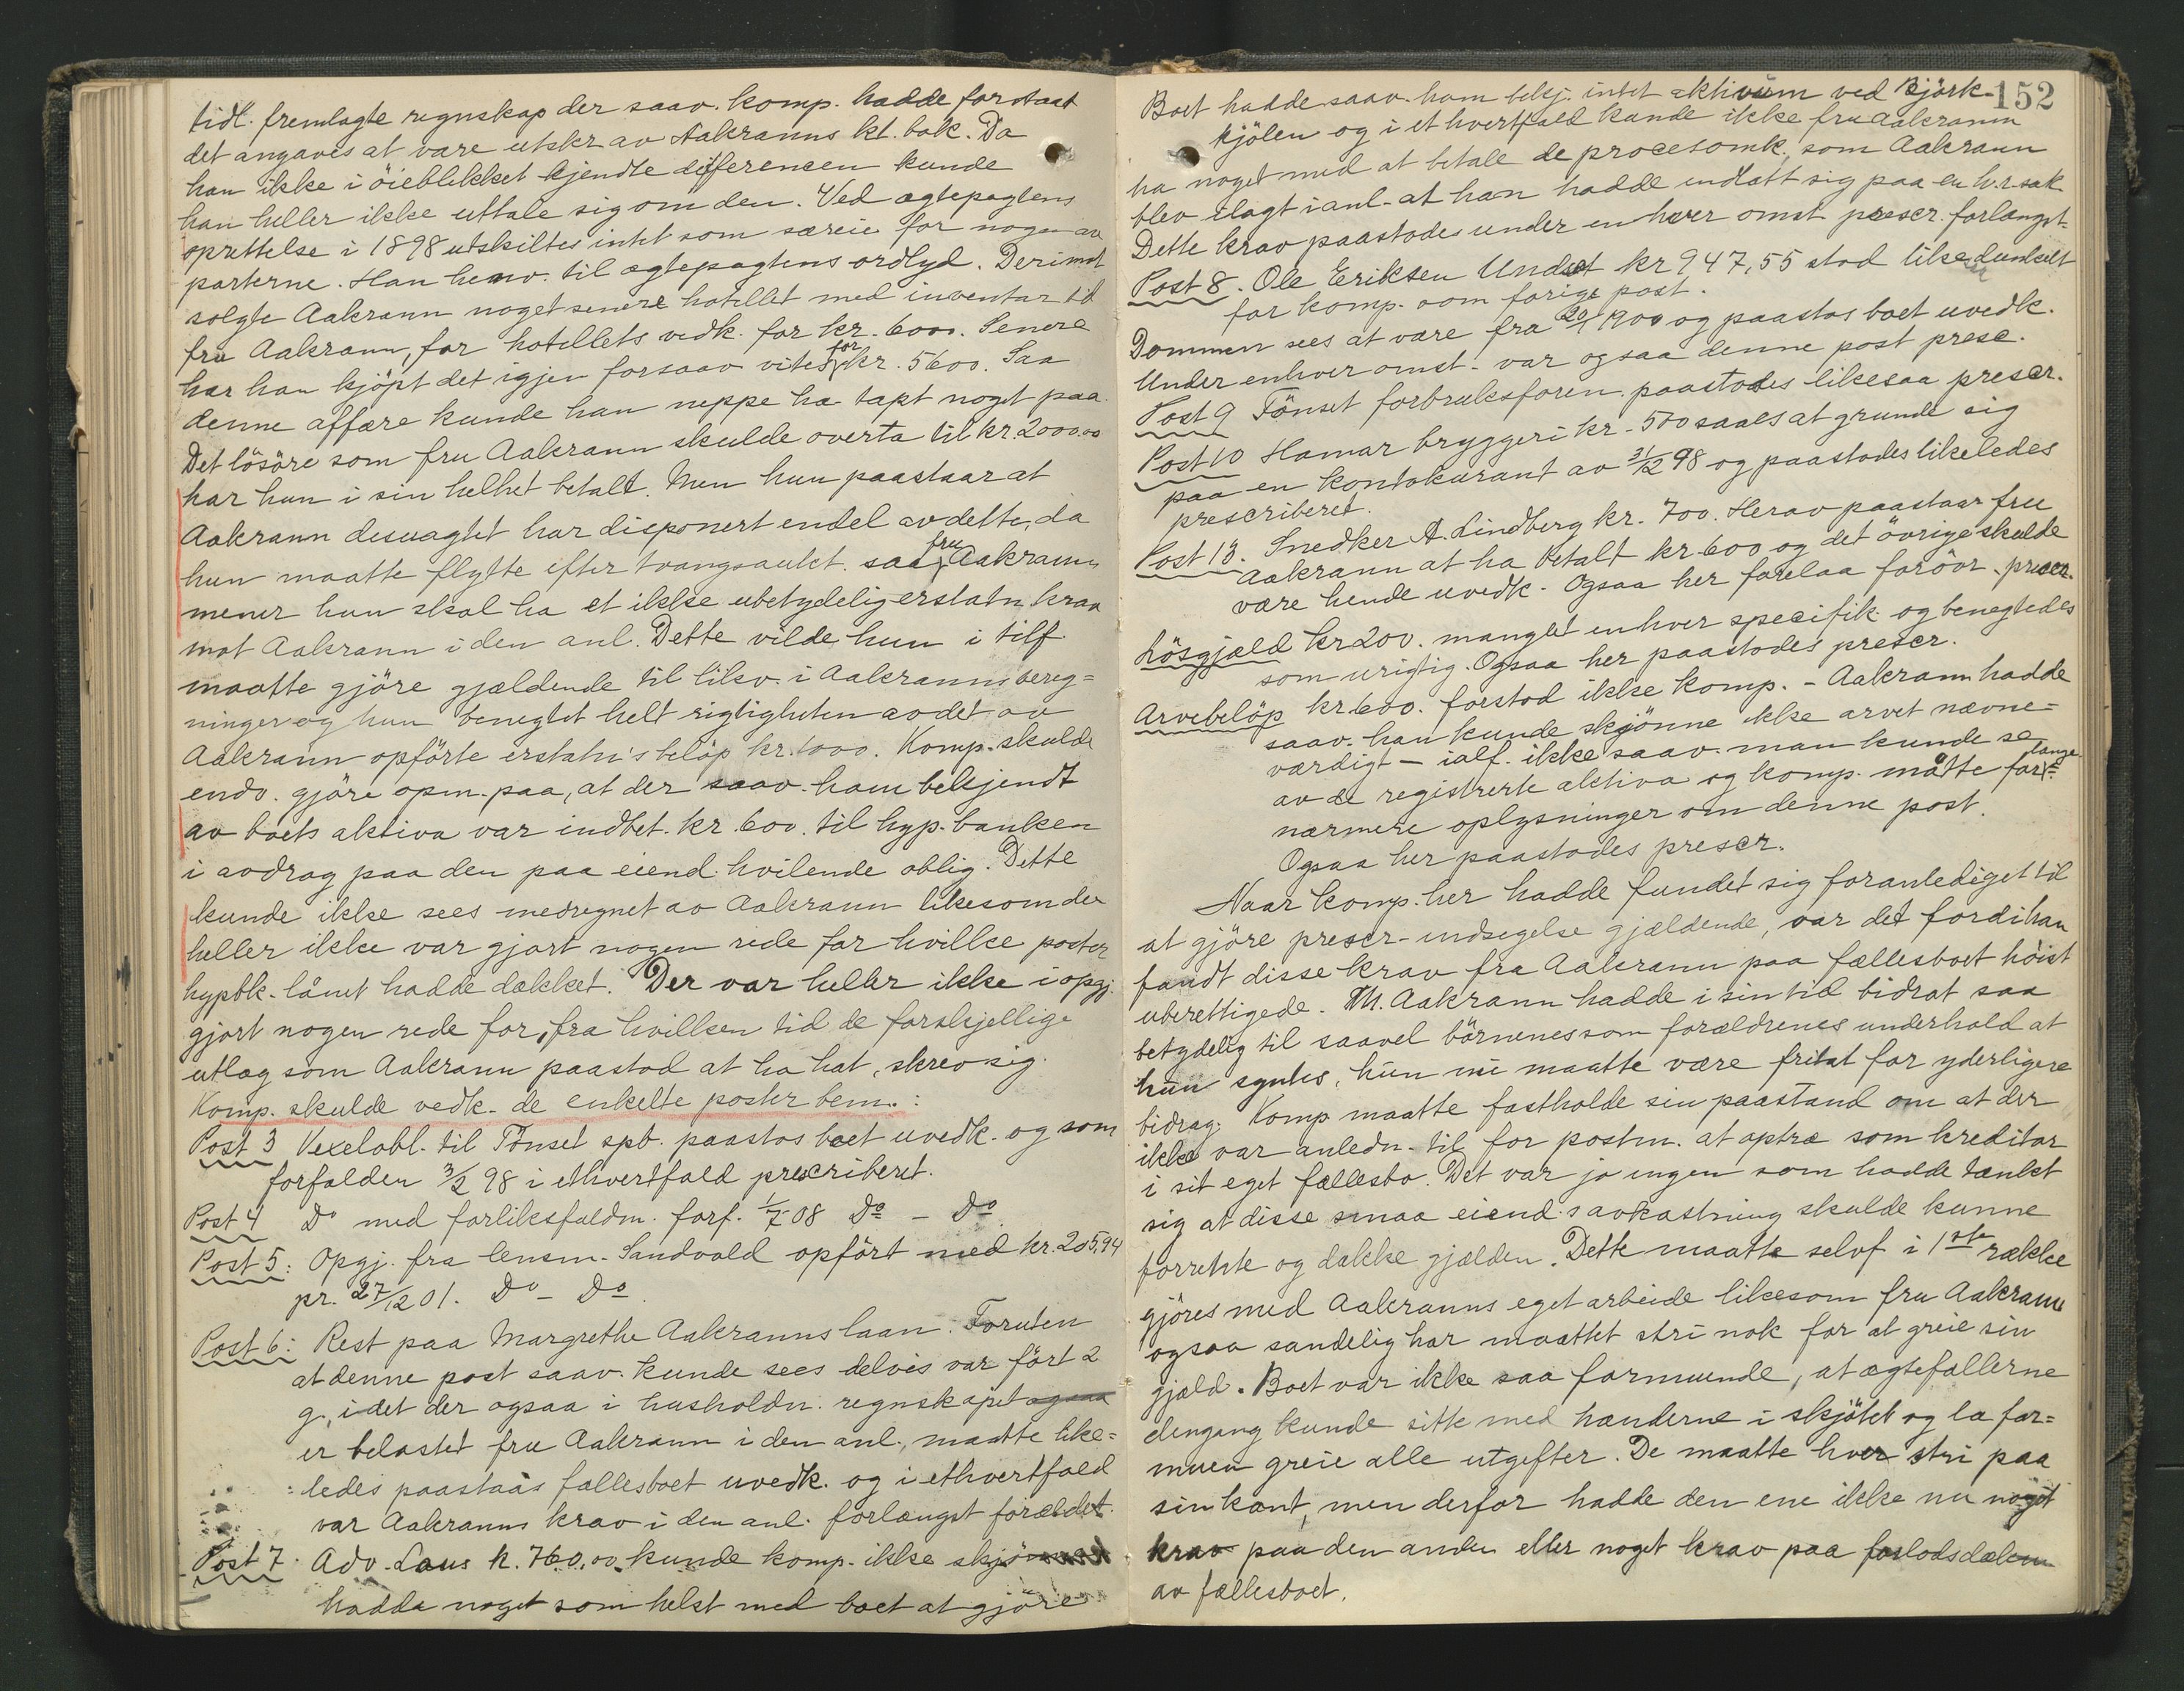 tidl. fremlagte regnskap der saav. komp. hadde forstaat
det angaves at være utskr av Aakranns kt. bok. Da
han ikke i öieblikket kjendte differencen kunde
han heller ikke uttale sig om den. Ved ægtepagtens
oprettelse i 1898 utskiltes intet som særeie for nogen av
parterne. Han henv. til ægtepagtens ordlyd. Derimot
solgte Aakrann noget senere hotellet med inventar til
fru Aakrann, for hotellets vedk. for kr. 6000. Senere
har han kjöpt det igjen forsaav vites for kr. 5600. Saa
denne affære kunde han neppe ha tapt noget paa.
Det lösöre som fru Aakrann skulde overta til kr. 2000.00
har hun i sin helhet betalt. Men hun paastaar at
Aakrann desuagtet har disponert endel av dette, da
hun maatte flytte efter tvangsauket. saa fru Aakrann
mener hun skal ha et ikke ubetydelig erstatn. krav
mot Aakrann i den anl. Dette vilde hun i tilf.
maatte gjöre gjældende til likv. i Aakranns bereg=
ninger og hun benegtet helt rigtigheten av det av
Aakrann opförte erstatn's belöp kr. 1000. Komp. skulde
endv. gjöre opm. paa, at der saav. ham bekjendt
av boets aktiva var indbet. kr. 600. til hyp. banken
i avdrag paa den paa eiend. hvilende oblig. Dette
kunde ikke sees medregnet av Aakrann likesom der
heller ikke var gjort nogen rede for hvilke poster
hypotk. lånet hadde dækket. Der var heller ikke i opgj.
gjort nogen rede for, fra hvilken tid de forskjellige
utlæg som Aakrann paastod at ha hat, skrev sig.
Komp. skulde vedk. de enkelte poster bem.:
Post 3 Vexelobl. til Tönset spb. paastos boet uvedk. og som
forfalden 3/2 98 i ethvertfald prescriberet.
Post 4 Do med forliksfaldm. forf. 1/7 08 Do – Do.
Post 5: Opgj. fra lensm. Sandvold opfört med kr. 205,94
pr. 27/12 01. Do – Do.
Post 6: Rest paa Margrethe Aakranns laan. Foruten
at denne post saav. kunde sees delvis var fört 2
g., idet der ogsaa i husholdn. regnskapet ogsaa
er belastet fru Aakrann i den anl., maatte like=
ledes paastaås fællesboet uvedk. og i ethvertfald
var Aakranns krav i den anl. forlængst forældet.
Post 7. Adv. Laus k. 760,00. kunde komp. ikke skjönne
hadde noget som helst med boet at gjöre
152
Boet hadde saav. ham bekj. intet aktivum ved Björk-
kjölen og i et hvertfald kunde ikke fru Aakrann
ha noget med at betale de procesomk. som Aakrann
blev ilagt i anl. at han hadde indlatt sig paa en h.r. sak
Dette krav paastodes under en hver omst. prescr. forlængst.
Post 8. Ole Eriksen Undset kr 947,55 stod like dunkelt
for komp. som forige post.
Dommen sees at være fra 20/1 1900 og paastos boet uvedk.
Under enhver omst. var ogsaa denne post presc.
Post 9 Tönset forbruksforen. paastodes likesaa prescr.
Post 10 Hamar bryggeri kr. 500 saaes at grunde sig
paa en kontokurant av 31/12 98 og paastodes likeledes
prescriberet.
Post 13. Snedker A. Lindberg kr. 700. Herav paastaar fru
Aakrann at ha betalt kr 600 og det övrige skulde
være hende uvedk. Ogsaa her forelaa forövr. prescr.
Lösgjæld kr 200. manglet enhver specifik og benegtedes
som urigtig. Ogsaa her paastodes prescr.
Arvebelöp kr 600. forstod ikke komp. – Aakrann hadde
saav. han kunde skjönne ikke arvet nævne=
værdigt – ialf. ikke saav. man kunde se
av de registrerte aktiva og komp. måtte forlange
nærmere oplysninger om denne post.
Ogsaa her paastodes prescr.
Naar komp. her hadde fundet sig foranlediget til
at gjöre prescr-indsegelse gjældende, var det fordi han
fandt disse krav fra Aakrann paa fællesboet höist
uberettigede. M. Aakrann hadde i sin tid bidrat saa
betydelig til saavel börnenes som forældrenes underhold at
hun syntes, hun nu maatte være fritat for yderligere
bidrag. Komp maatte fastholde sin paastand om at der
ikke var anledn. til for postm. at optræ som kreditor
i sit eget fællesbo. Det var jo ingen som hadde tænkt
sig at disse smaa eiend.s avkastning skulde kunne
forrente og dække gjælden. Dette maatte selvf. i 1ste række
gjöres med Aakranns eget arbeide likesom fru Aakrann
ogsaa sandelig har maattet stri nok for at greie sin
gjæld. Boet var ikke saa formuende, at ægtefællerne
dengang kunde sitte med hænderne i skjötet og la for=
muen greie alle utgifter. De maatte hver stri paa
sin kant, men derfor hadde den ene ikke nu noget
krav paa den anden eller noget krav paa forlodsdækn
av fællesboet.